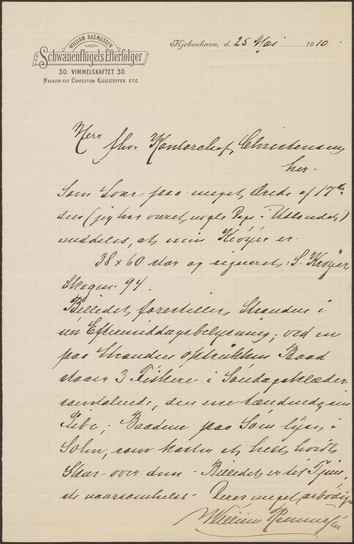 WILLIAM RASMUSSEN
Schwanenflügels Efterfølger
30. VIMMELSKAFTET 30.
Kjøbenhavn, d. 25 Maj 1910.
Herr Kontorchef Christensen
her.
Som Svar paa meget ærede af 17de
ds (jeg har været nogle Dage i Udlandet)
meddeles, at min Krøyer er
38 x 60 stor og signeret: S. Krøyer,
Skagen 94.
Billedet forestiller Stranden i
en Eftermiddagsbelysning; ved en
paa Stranden optrukken Baad
staar 3 Fiskere i Søndagsklæder
samtalende, den ene tændende sin
Pibe; Baaden paa Søen lyser i
Solen, som kaster et helt hvidt
Skær over den - Billedet er til Tjeneste
at
Deres meget ærbødige
William Rasmussen